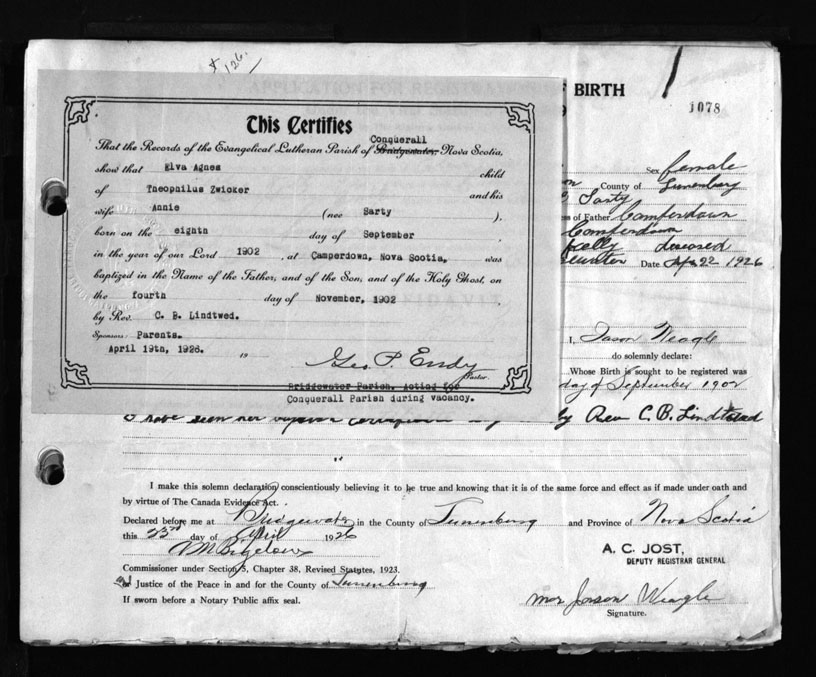 126
BIRTH
1078
This Certifies
Conquerall
That the Records of the Evangelical Lutheran Parish of Bridgewater, Nova Scotia,
show that Elva Agnes child
of Theophilus Zwicker and his
wife Annie (nee Sarty ),
born on the eighth day of September
in the year of our Lord 1902, at Camperdown, Nova Scotia, was
baptized in the Name of the Father, and of the Son, and of the Holy Ghost, on
the fourth day of November, 1902
by Rev. C. B. Lindtwed.
Sponsors: Parents.
April 19th, 1926. 19
Geo. P. Endy
Pastor.
Bridgewater Parish, Acting for
Conquerall Parish during vacancy.
Sex female
County of Lunenburg
Sarty
of Father Camperdown
Camperdown
deceased
Date Apr 22 1926
I, Jason Weagle
do solemnly declare:
Whose Birth is sought to be registered was
day of September 1902
I have seen her by Rev C. B. Lindtwed
I make this solemn declaration conscientiously believing it to be true and knowing that it is of the same force and effect as if made under oath and
by virtue of The Canada Evidence Act.
Declared before me at Bridgewater in the County of Lunenburg and Province of Nova Scotia
this 23rd day of April 1926
Commissioner under Section 5, Chapter 38, Revised Statutes, 1923.
or Justice of the Peace in and for the County of Lunenburg
If sworn before a Notary Public affix seal.
A. C. JOST,
DEPUTY REGISTRAR GENERAL
Mrs Jonson Weagle
Signature.